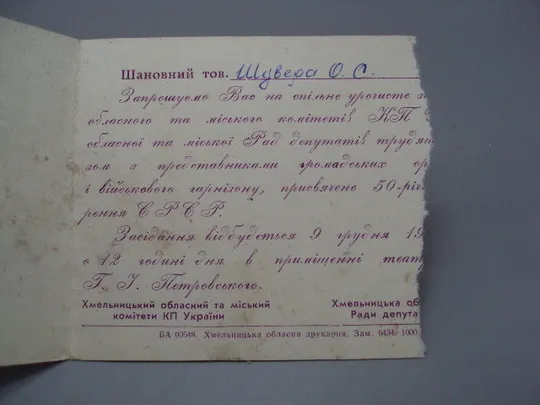 Шановний тов. Шувера О. С.
Запрошуємо Вас на спільне урочисте з
обласного та міського комітетів КП
обласної та міської Рад депутатів трудящ
хом з представниками громадських ор
і військового гарнізону, присвячене 50-річ
рення СРСР.
Засідання відбудеться 9 грудня 19
о 12 годині дня в приміщенні теат
Г. І. Петровського.
Хмельницький обласний та міський
комітети КП України
Хмельницька об
Ради депута
БА 00548. Хмельницька обласна друкарня. Зам. 6434- 1000.